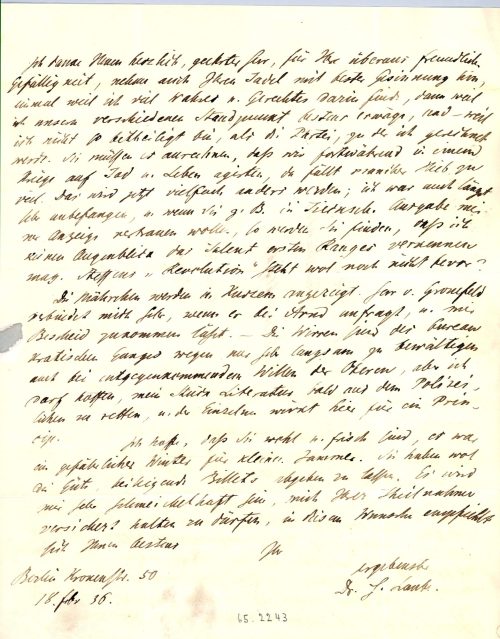 Ich danke Ihnen herzlich, geehrter Herr, für Ihre überaus freundliche
Gefälligkeit, nehme auch Ihren Tadel mit bester Gesinnung hin,
einmal weil ich viel Wahres u. Gerechtes darin find, dann weil
ich unsern verschiedenen Standpunkt dabei erwäge, und – weil
ich nicht so betheiligt bin, als die Partei, zu der ich gerechnet
werde. Sie müssen es anrechnen, daß wir fortwährend in einem
Kriege auf Tod u. Leben agirten, da fällt mancher Hieb zu
viel. Das wird jetzt vielfach anders werden; ich war auch längst
sehr unbefangen, u. wenn Sie z. B. in Ausgabe mei
ne Anzeige nachsehen wollen, so werden Sie finden, daß ich
keinen Augenblick das Talent ersten Ranges verkennen
mag. Steffens „Revolution" steht wol noch nicht bevor?
Die Mährchen werden in Kurzem angezeigt. Herr v. Gronefeld
verbindet mich sehr, wenn er bei Arnd anfragt, u. mir
Bescheid zukommen läßt. – Die Wirren sind des bureau
kratischen Ganges wegen nur sehr langsam zu bewältigen
auch bei entgegenkommendem Willen der Oberen, aber ich
darf hoffen, mein Literatur bald aus dem Polizei-
lichen zu retten, u. der Einzelne wirkt hier für ein Prin-
cip.
Ich hoffe, daß Sie wohl u. frisch sind, es war
ein gefährlicher Winter für kleine Jammer. Sie haben wol
die Güte, beiliegende Billets abgeben zu lassen. Es wird
mir sehr schmeichelhaft sein, mich Ihrer Theilnahme
versichert halten zu dürfen, in diesem Wunsche empfiehlt
sich Ihnen bestens
Ihr
ergebenster
Dr. H. Laube.
Berlin Kronenstr. 50
18. 36.
65.2243